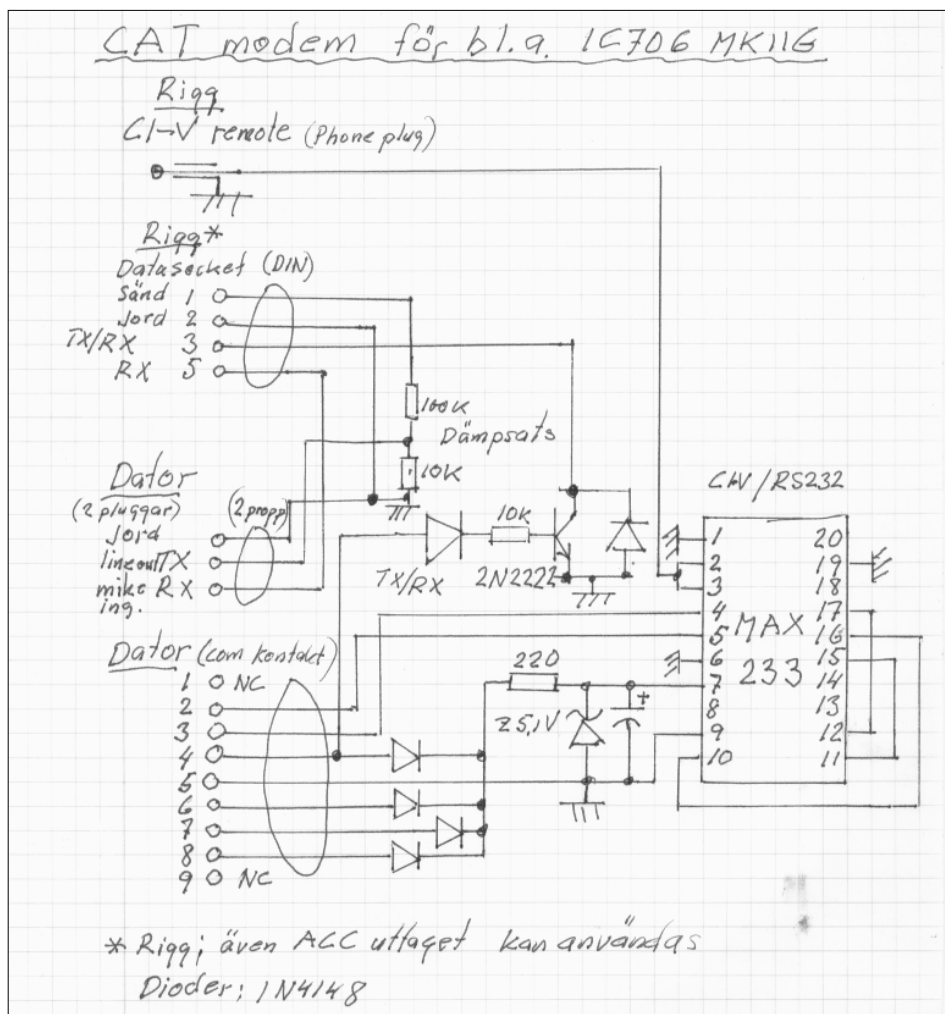 CAT modem för bl.a. IC706 MKIIG
Rigg
CI-V remote (Phone plug)
Rigg*
Datasocket (DIN)
Sänd 1
Jord 2
TX/RX 3
RX 5
100K
Dämpsats
10K
Dator
(2 pluggar)
(2 propp)
Jord
lineout TX
mike RX
ing.
10K
TX/RX
2N2222
CI-V/RS232
MAX
233
1
2
3
4
5
6
7
8
9
10
20
19
18
17
16
15
14
13
12
11
Dator (com kontakt)
1 NC
2
3
4
5
6
7
8
9 NC
220
Z5,1V
+
* Rigg; även ACC uttaget kan användas
Dioder: 1N4148